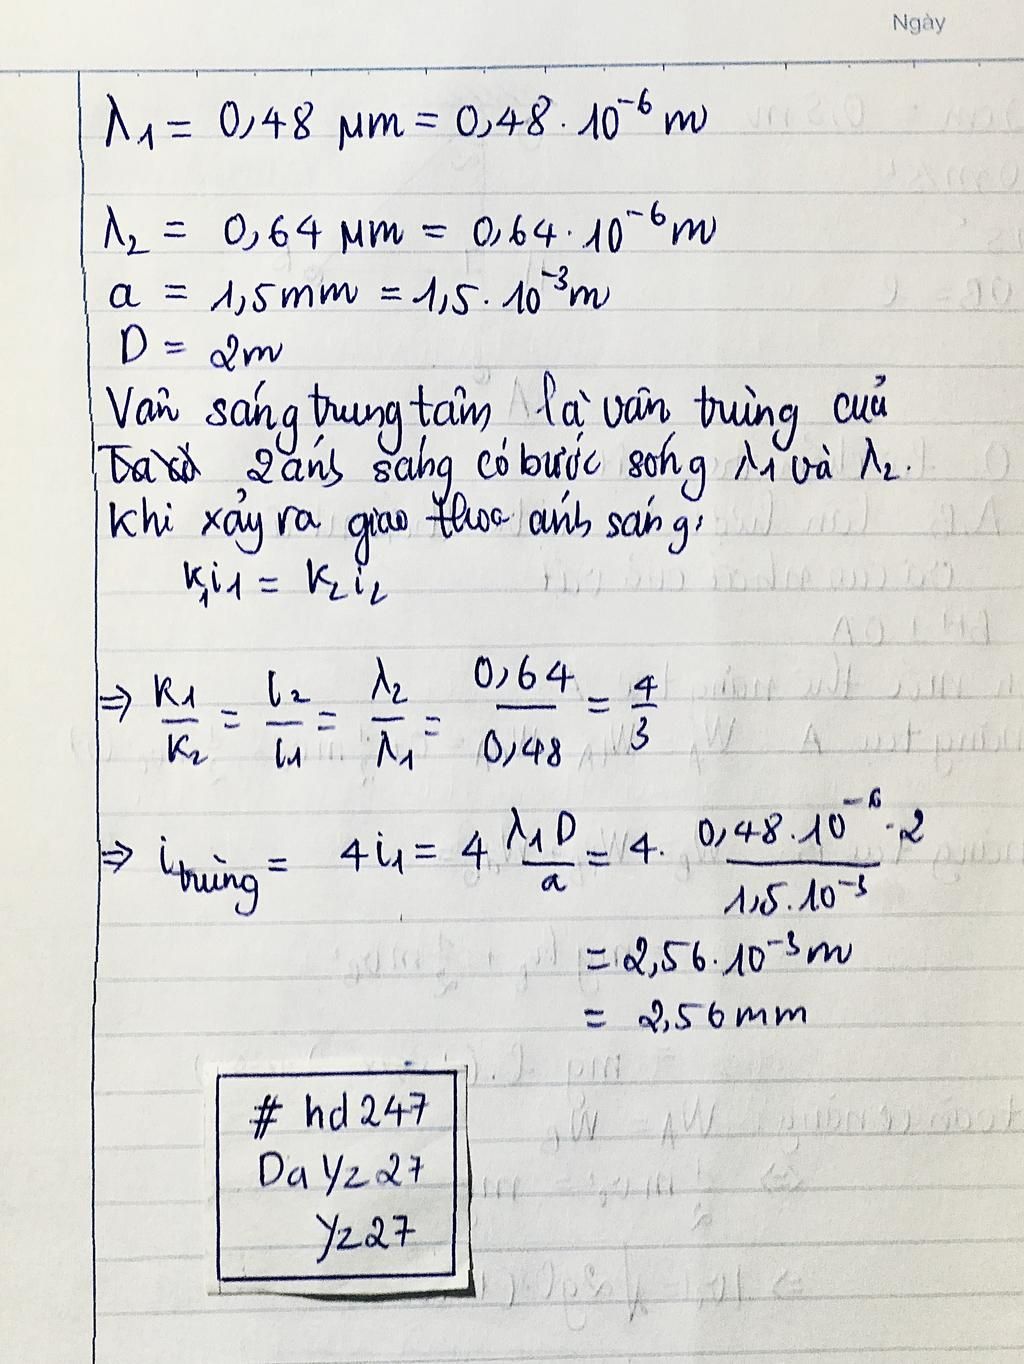 Ngày
λ1 = 0,48 µm = 0,48 . 10⁻⁶ m
λ2 = 0,64 µm = 0,64 . 10⁻⁶ m
a = 1,5mm = 1,5 . 10⁻³m
D = 2m
Vân sáng trung tâm là vân trùng của
2 ánh sáng có bước sóng λ1 và λ2.
Khi xảy ra giao thoa ánh sáng:
k1i1 = k2i2
⇒ k1/k2 = i2/i1 = λ2/λ1 = 0,64/0,48 = 4/3
⇒ i trùng = 4i1 = 4 λ1D/a = 4 . 0,48.10⁻⁶.2/1,5.10⁻³
= 2,56 . 10⁻³m
= 2,56mm
# hd247
DaYz27
Yz27